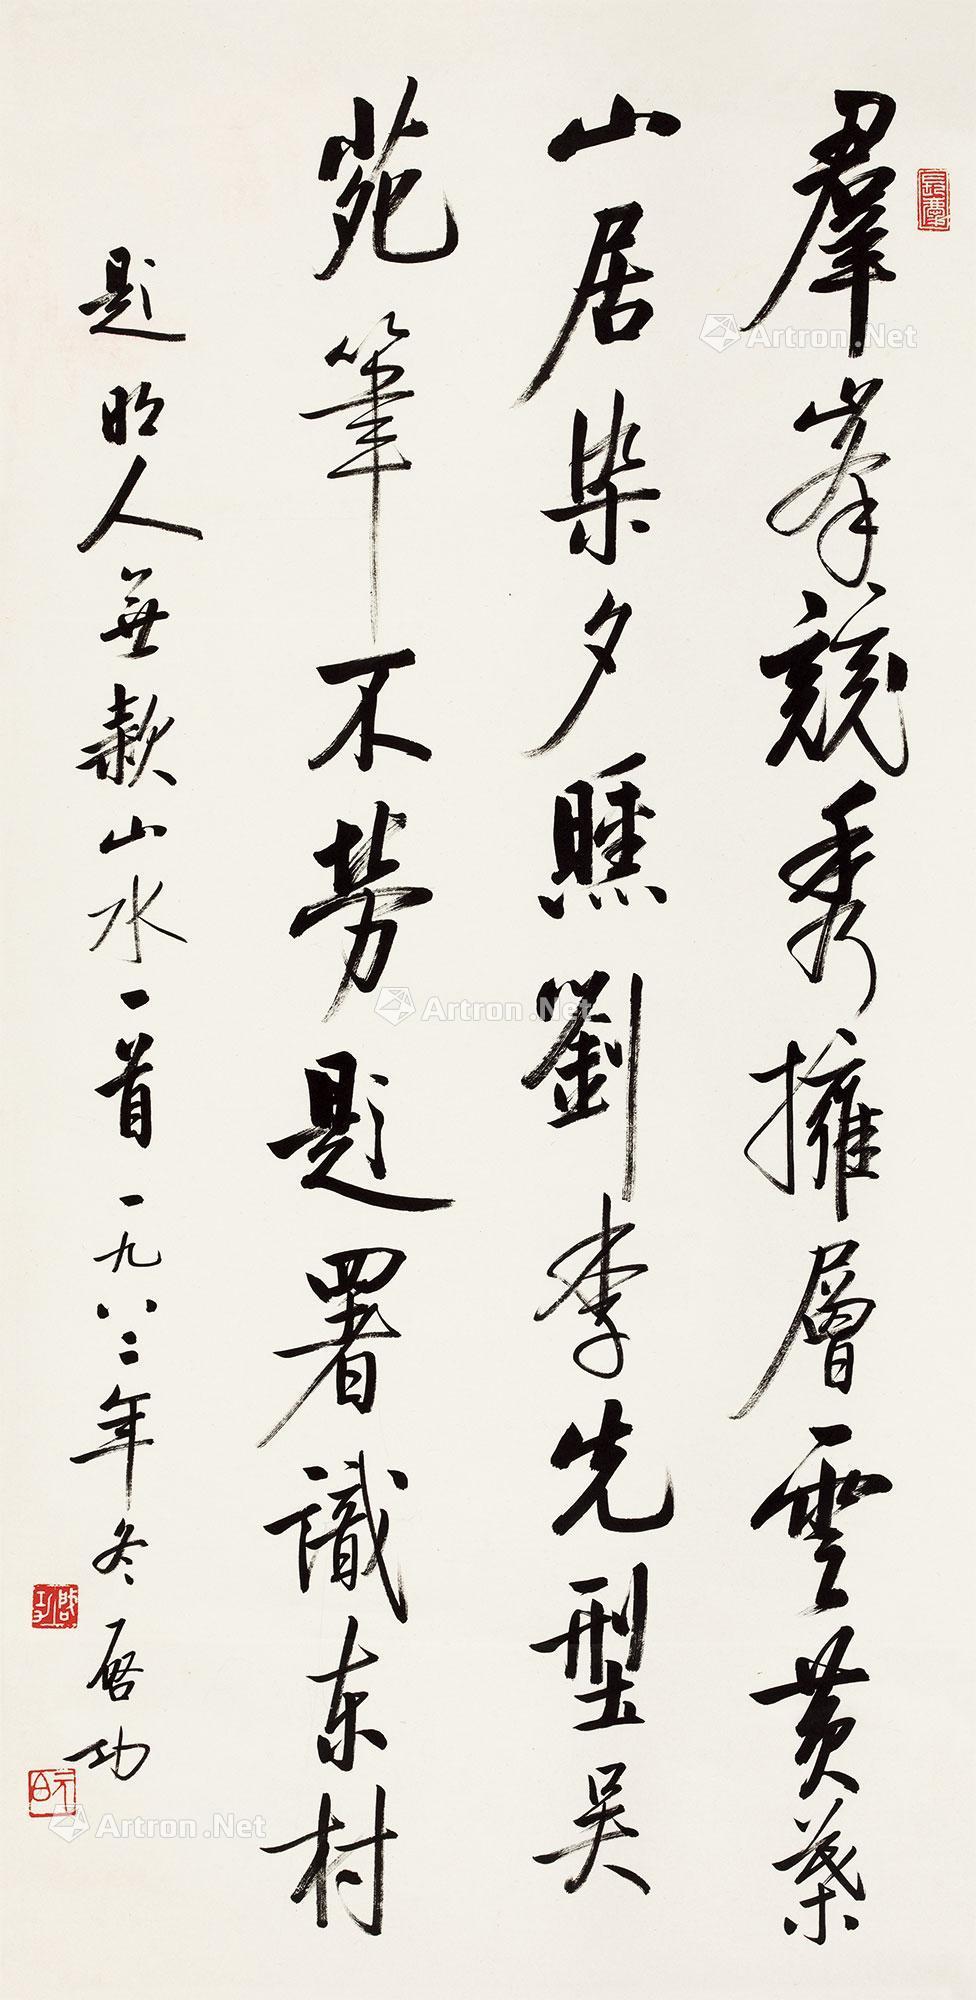 羣峯競秀擁層雲黃葉
山居染夕曛劉李先型吳
苑筆不勞題署識東村
題明人無款山水一首一九八二年冬啓功
啟功
元白
Artron.Net
Artron.Net
Artron.Net